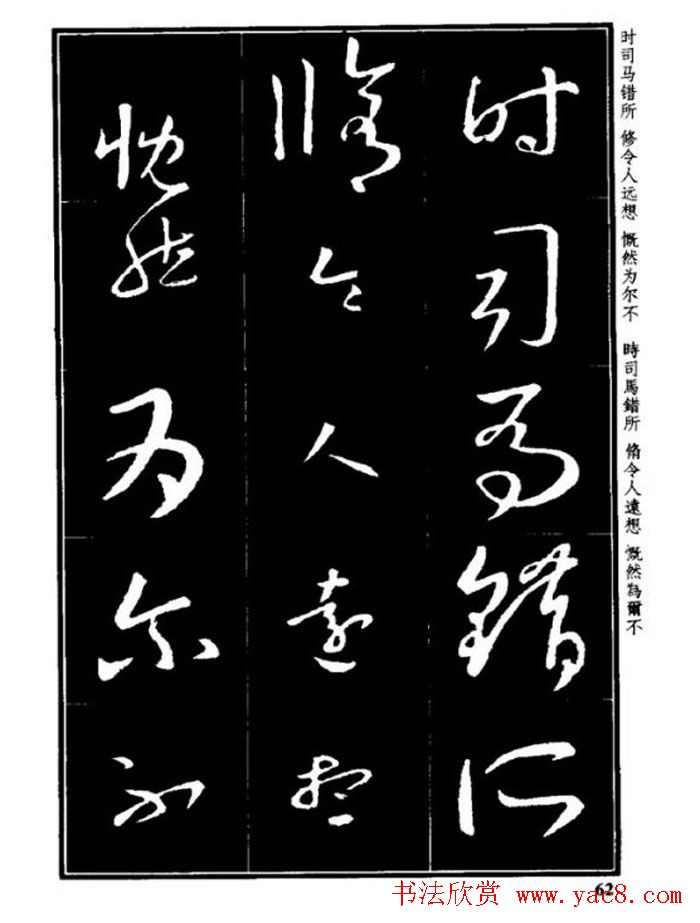 时司马错所 修令人远想 慨然为尔不
時司馬錯所 脩令人遠想 慨然為爾不
时司马错所
脩令人远想
慨然为尔不
62
书法欣赏 www.yac8.com